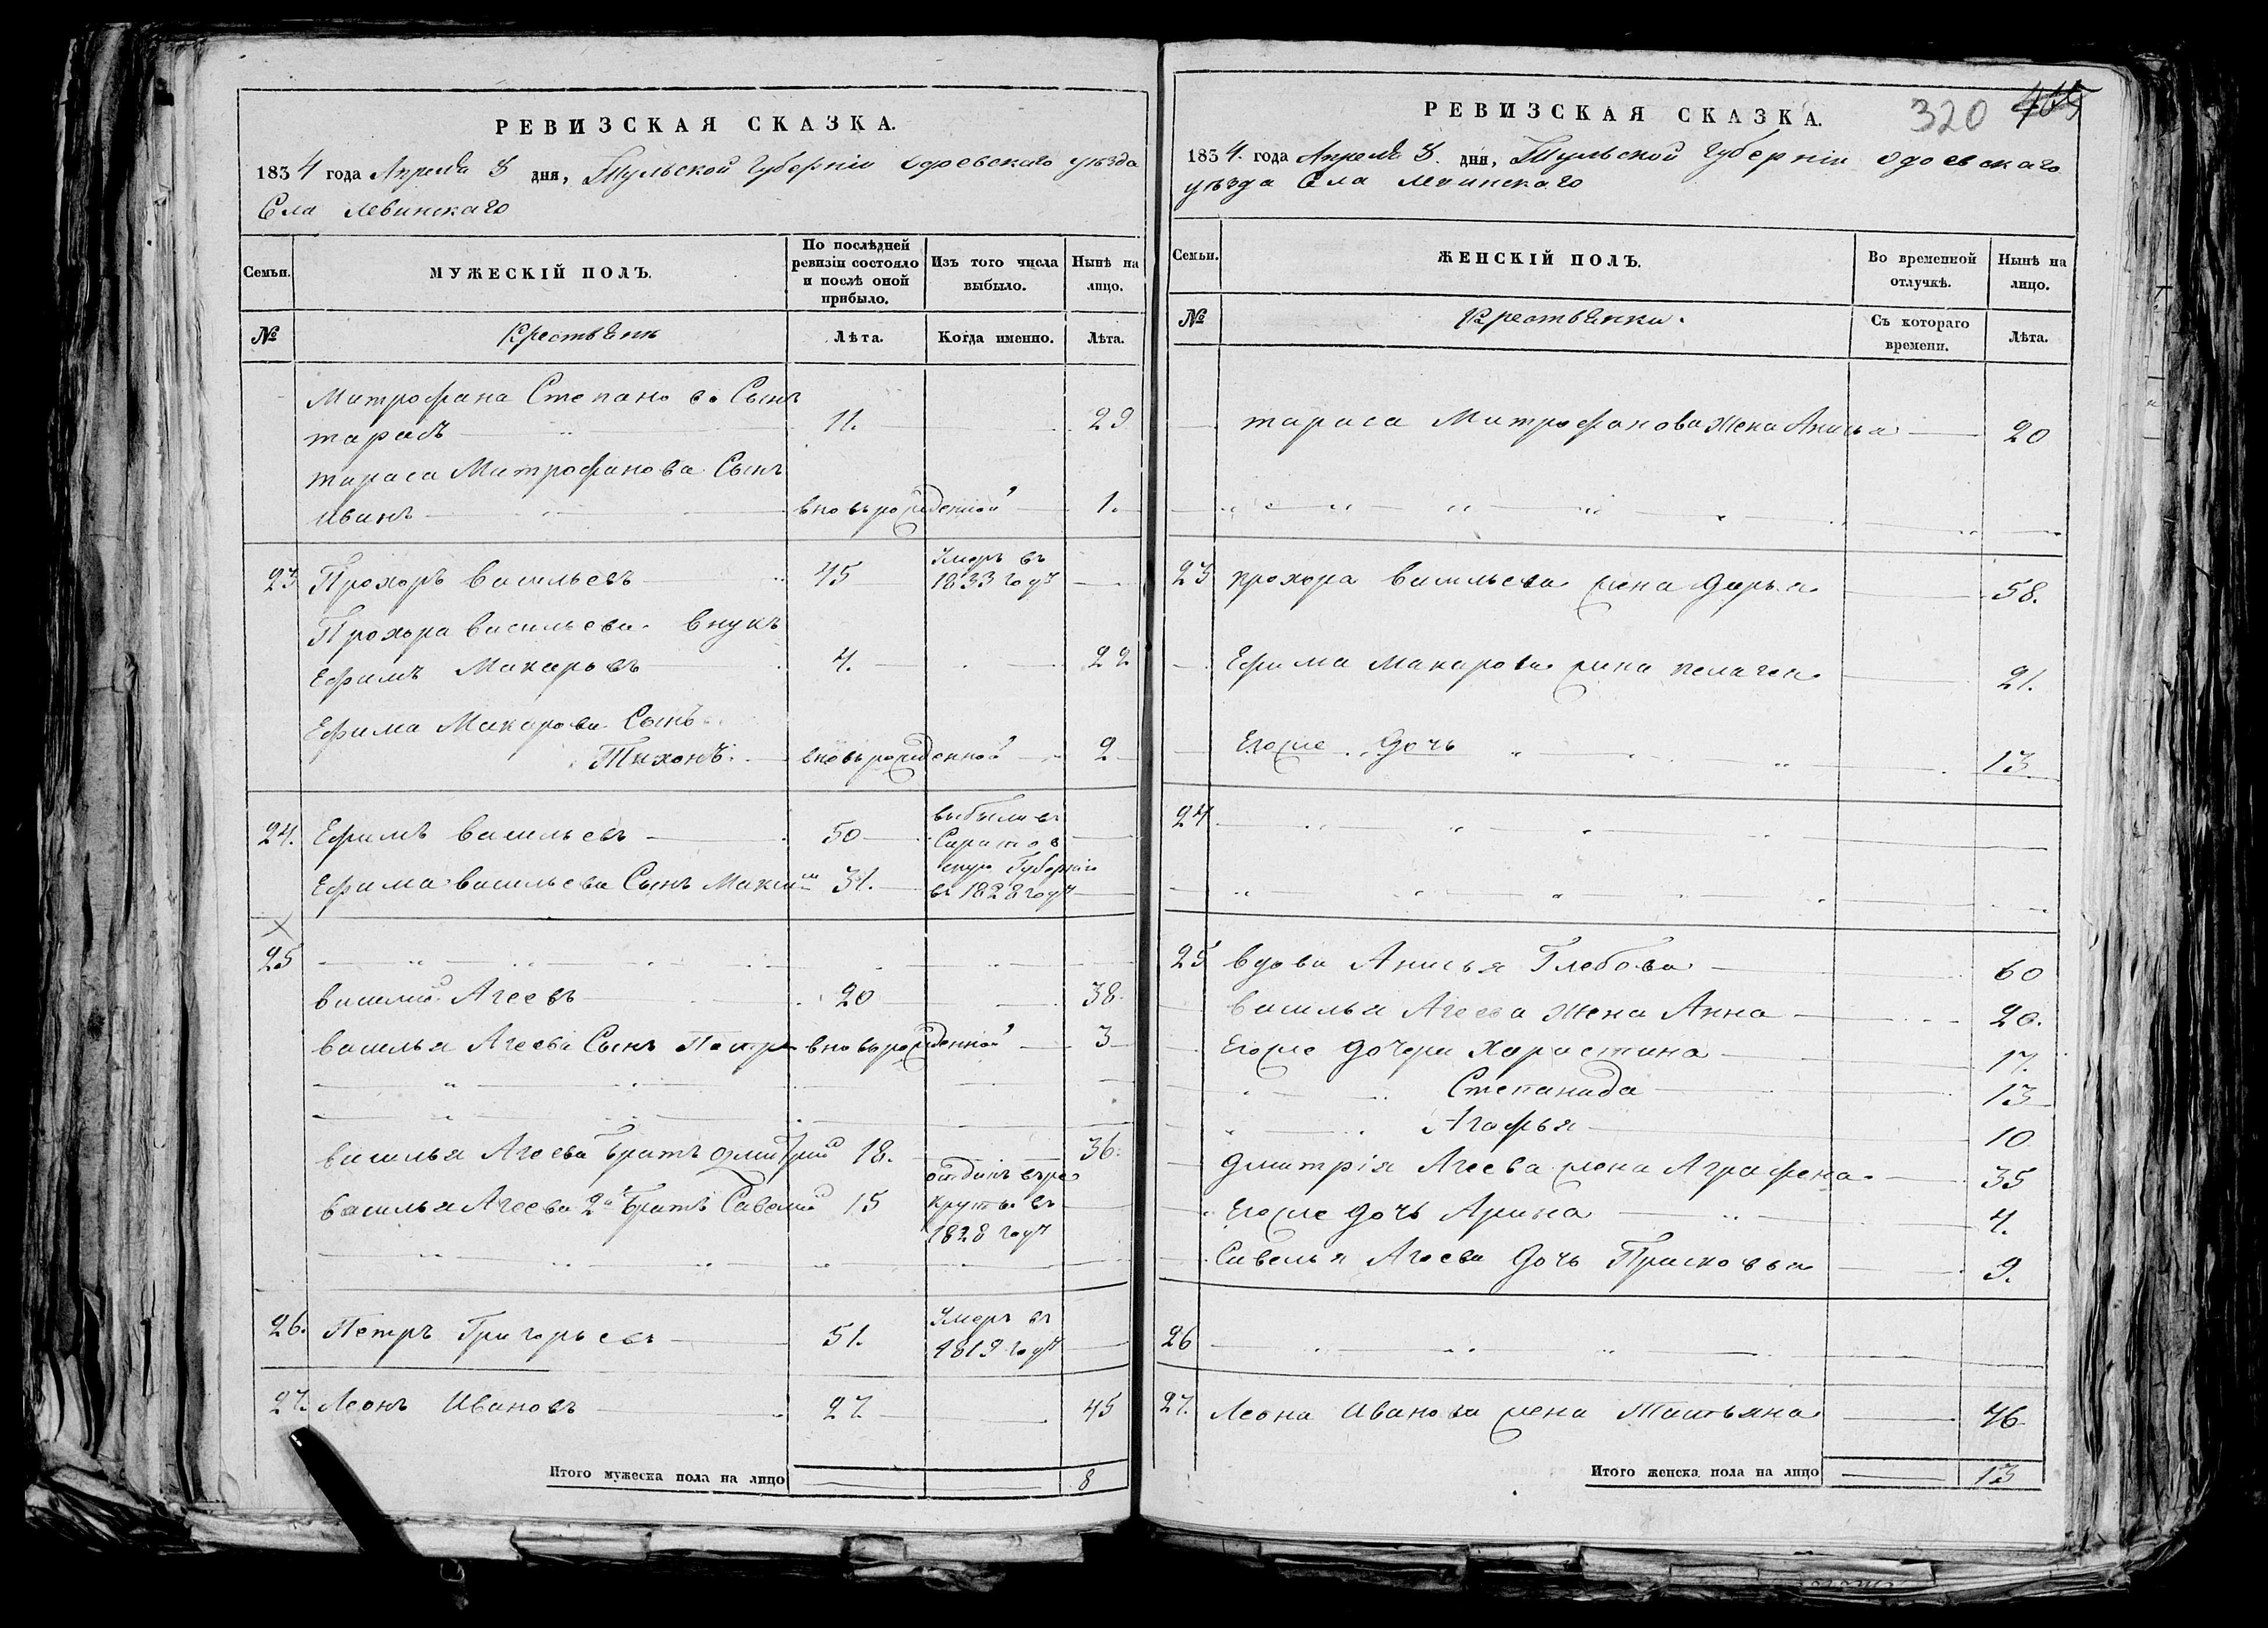 РЕВИЗСКАЯ СКАЗКА.
1834 года Апреля 3 дня, Тульской Губерніи одоевскаго уѣзда
Села Левинскаго
Семьи.
МУЖЕСКІЙ ПОЛЪ.
По послѣдней
ревизіи состояло
и послѣ оной
прибыло.
Изъ того числа
выбыло.
Нынѣ на
лицо.
№
Крестьянъ
Лѣта.
Когда именно.
Лѣта.
Митрофана Степанова Сынъ
тарасъ 11. 29
тараса Митрофанова Сынъ
иванъ вновь рожденной 1.
23 Прохоръ васильевъ 45 Умеръ въ 1833 году
Прохора васильева внукъ
Ефимъ Макаровъ 4. 22
Ефима Макарова Сынъ
Тихонъ. вновь рожденной 2
24. Ефимъ васильевъ 50 выбыли въ
Саратов
Ефима васильева Сынъ Максимъ 31. скую Губернію
въ 1828 году
х
25
василий Агеевъ 20 38.
василья Агеева Сынъ Петръ вновь рожденной 3
василья Агеева братъ дмитрий 18. 36.
василья Агеева 2й братъ Савелий 15 отданъ въ ре
круты въ
1828 году
26. Петръ Григорьевъ 51. Умеръ въ
1819 году
27. Леонъ Ивановъ 27. 45
Итого мужеска пола на лицо 8
320
РЕВИЗСКАЯ СКАЗКА.
1834. года Апреля 3. дня, Тульской Губерніи одоевскаго
уѣзда Села Левинскаго
Семьи.
ЖЕНСКІЙ ПОЛЪ.
Во временной
отлучкѣ.
Нынѣ на
лицо.
№
Крестьянки.
Съ котораго
времени.
Лѣта.
тараса Митрофанова жена Анисья 20
23 прохора васильева жена дарья 58.
Ефима макарова жена пелагея 21.
Егоже дочь 13
24
25 вдова Анисья Глебова 60
василья Агеева жена Анна 20.
Егоже дочери Харистина 17.
Степанида 13
Агафья 10
дмитрія Агеева жена Аграфена 35
Егоже дочь Арина 4.
Савелья Агеева дочь Прасковья 9.
26
27. Леона иванова жена Татьяна 46
Итого женска пола на лицо 13